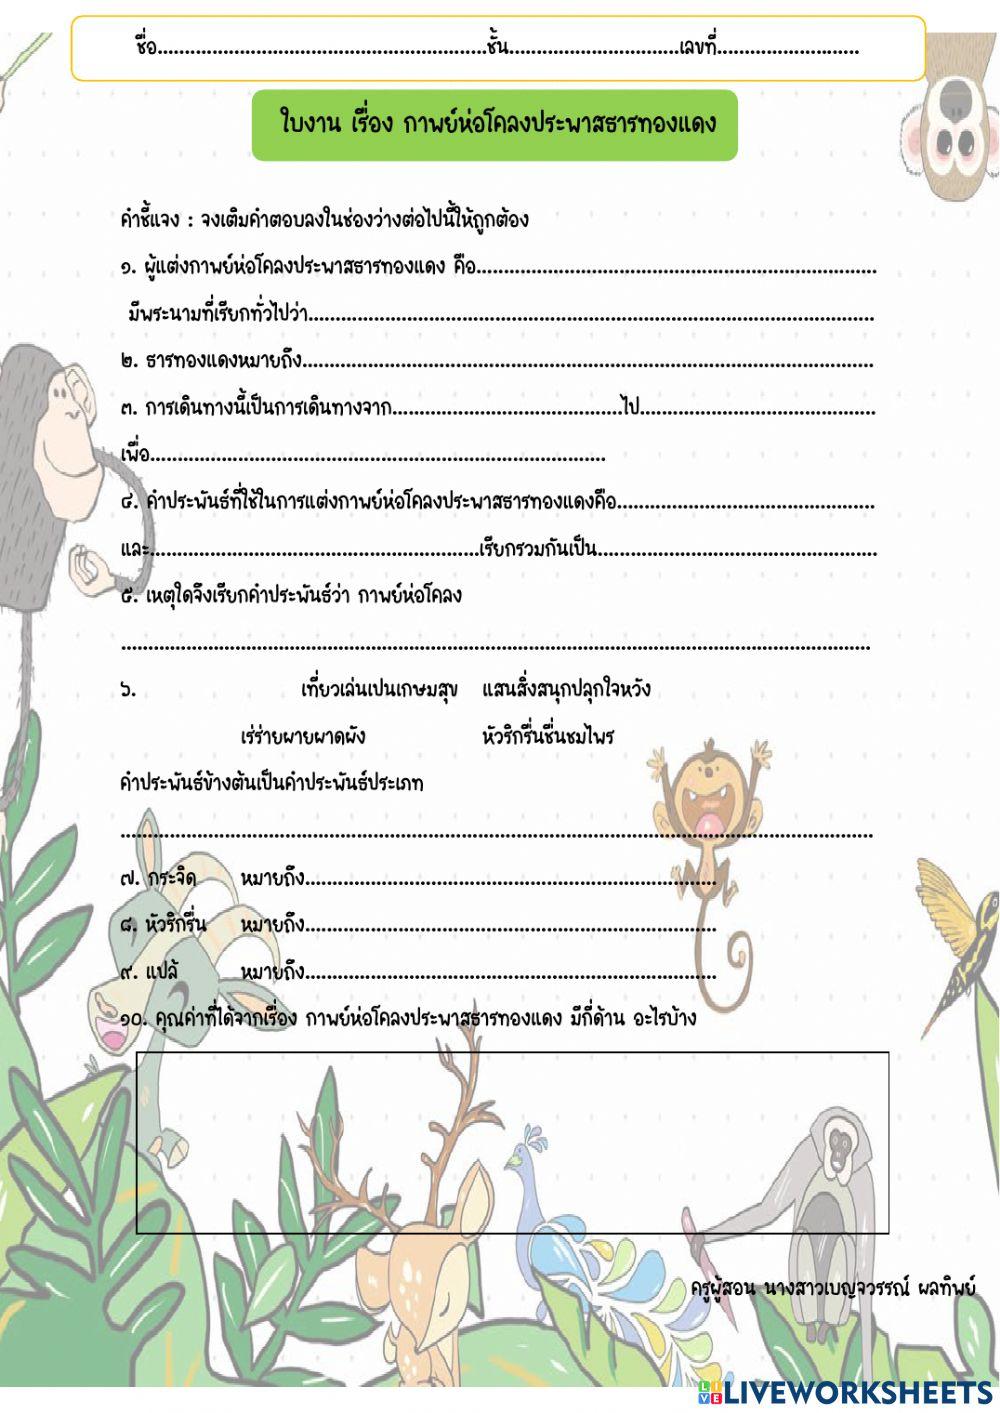 ชื่อ............................................................ชั้น...............................เลขที่..........................
ใบงาน เรื่อง กาพย์ห่อโคลงประพาสธารทองแดง
คำชี้แจง : จงเติมคำตอบลงในช่องว่างต่อไปนี้ให้ถูกต้อง
๑. ผู้แต่งกาพย์ห่อโคลงประพาสธารทองแดง คือ..........................................................................
มีพระนามที่เรียกทั่วไปว่า........................................................................................................
๒. ธารทองแดงหมายถึง.........................................................................................................
๓. การเดินทางนี้เป็นการเดินทางจาก..........................................ไป...........................................
เพื่อ...................................................................................
๔. คำประพันธ์ที่ใช้ในการแต่งกาพย์ห่อโคลงประพาสธารทองแดงคือ...............................................
และ............................................................เรียกรวมกันเป็น...................................................
๕. เหตุใดจึงเรียกคำประพันธ์ว่า กาพย์ห่อโคลง
..........................................................................................................................................
๖. เที่ยวเล่นเปนเกษมสุข แสนสิ่งสนุกปลุกใจหวัง
เร่ร่ายผายผาดผัง หัวริกรื่นชื่นชมไพร
คำประพันธ์ข้างต้นเป็นคำประพันธ์ประเภท
..........................................................................................................................................
๗. กระจิด หมายถึง...........................................................................
๘. หัวริกรื่น หมายถึง...........................................................................
๙. แปล้ หมายถึง...........................................................................
๑๐. คุณค่าที่ได้จากเรื่อง กาพย์ห่อโคลงประพาสธารทองแดง มีกี่ด้าน อะไรบ้าง
ครูผู้สอน นางสาวเบญจวรรณ์ ผลทิพย์
LIVE LIVEWORKSHEETS